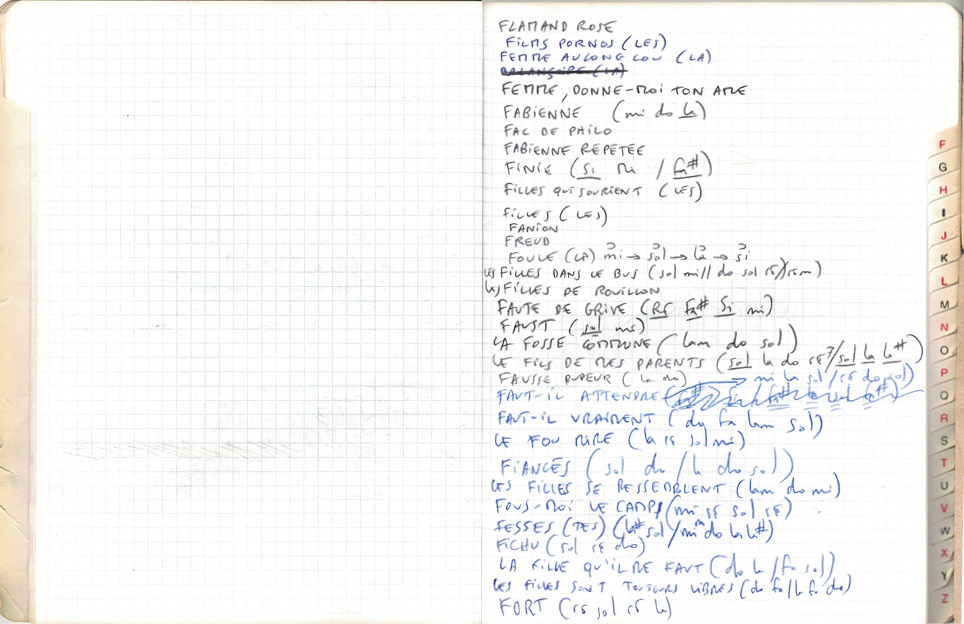 FLAMAND ROSE
FILMS PORNOS (LES)
FEMME AU LONG COU (LA)
BALANÇOIRE (LA)
FEMME, DONNE-MOI TON AME
FABIENNE (mi do la)
FAC DE PHILO
FABIENNE REPETEE
FINIE (Si Mi / fa#)
FILLES QUI SOURIENT (LES)
FILLES (LES)
FANION
FREUD
FOULE (LA) mi → sol → la → si
LES FILLES DANS LE BUS (sol mi // do sol ré)
LES FILLES DE ROUILLON
FAUTE DE GRIVE (Ré fa# Si mi)
FAUST (sol mi)
LA FOSSE COMMUNE (lam do sol)
LE FILS DE MES PARENTS (sol la do ré ? / sol la la#)
FAUSSE RUMEUR (la mi)
FAUT-IL ATTENDRE → mi la sol / ré do sol)
FAUT-IL VRAIMENT (do fa lam sol)
LE FOU RIRE (la ré sol mi)
FIANCÉS (sol do / la do sol)
LES FILLES SE RESSEMBLENT (lam do mi)
FOUS-MOI LE CAMP (mi ré sol ré)
FESSES (TES) (la# sol / mim do la la#)
FICHU (sol ré do)
LA FILLE QU'IL ME FAUT (do la / fa sol)
LES FILLES SONT TOUJOURS LIBRES (do fa / la fa do)
FORT (ré sol ré la)
F
G
H
I
J
K
L
M
N
O
P
Q
R
S
T
U
V
W
X
Y
Z